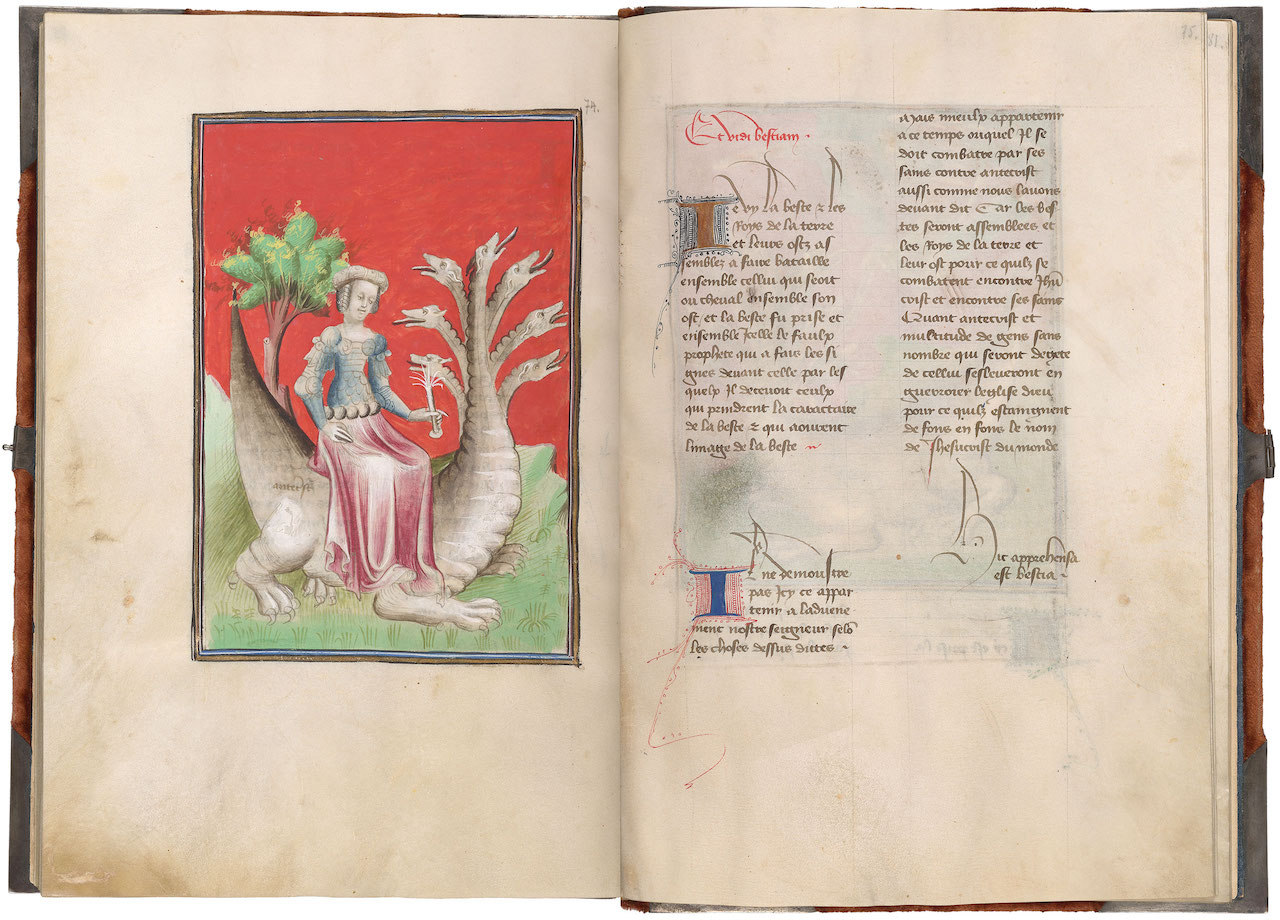 74.
antecrist
75.
81.
Et vidi bestiam ·
Je vy la beste & les
Roys de la terre
et leurs ostz as
semblez a faire bataille
ensemble cellui qui seoit
ou cheval ensemble son
ost / et la beste fu prise et
ensemble Jcelle le faulx
prophete qui a fais les si
gnes devant celle par les
quelx Jl decevoit ceulx
qui prindrent la caractaire
de la beste & qui aourent
limage de la beste
Jl ne demoustre
pas Jcy ce appar
tenir a ladvene
ment nostre seigneur selõ
les choses dessus dittes ·
Mais mieulx appartenir
a ce temps ouquel Jl se
doit combatre par ses
sains contre antecrist
aussi comme nous lavons
devant dit Car les bes
tes seront assemblees et
les Roys de la terre et
leur ost pour ce quilz se
combatent encontre Jhũ
crist et encontre ses sains
Quant antecrist et
multitude de gens sans
nombre qui seront degete
de cellui sesleveront en
guerroier leglise dieu
pour ce quilz estaingnent
de fons en fons le nom
de Jhesucrist du monde
Hic apprehensa
est bestia ·